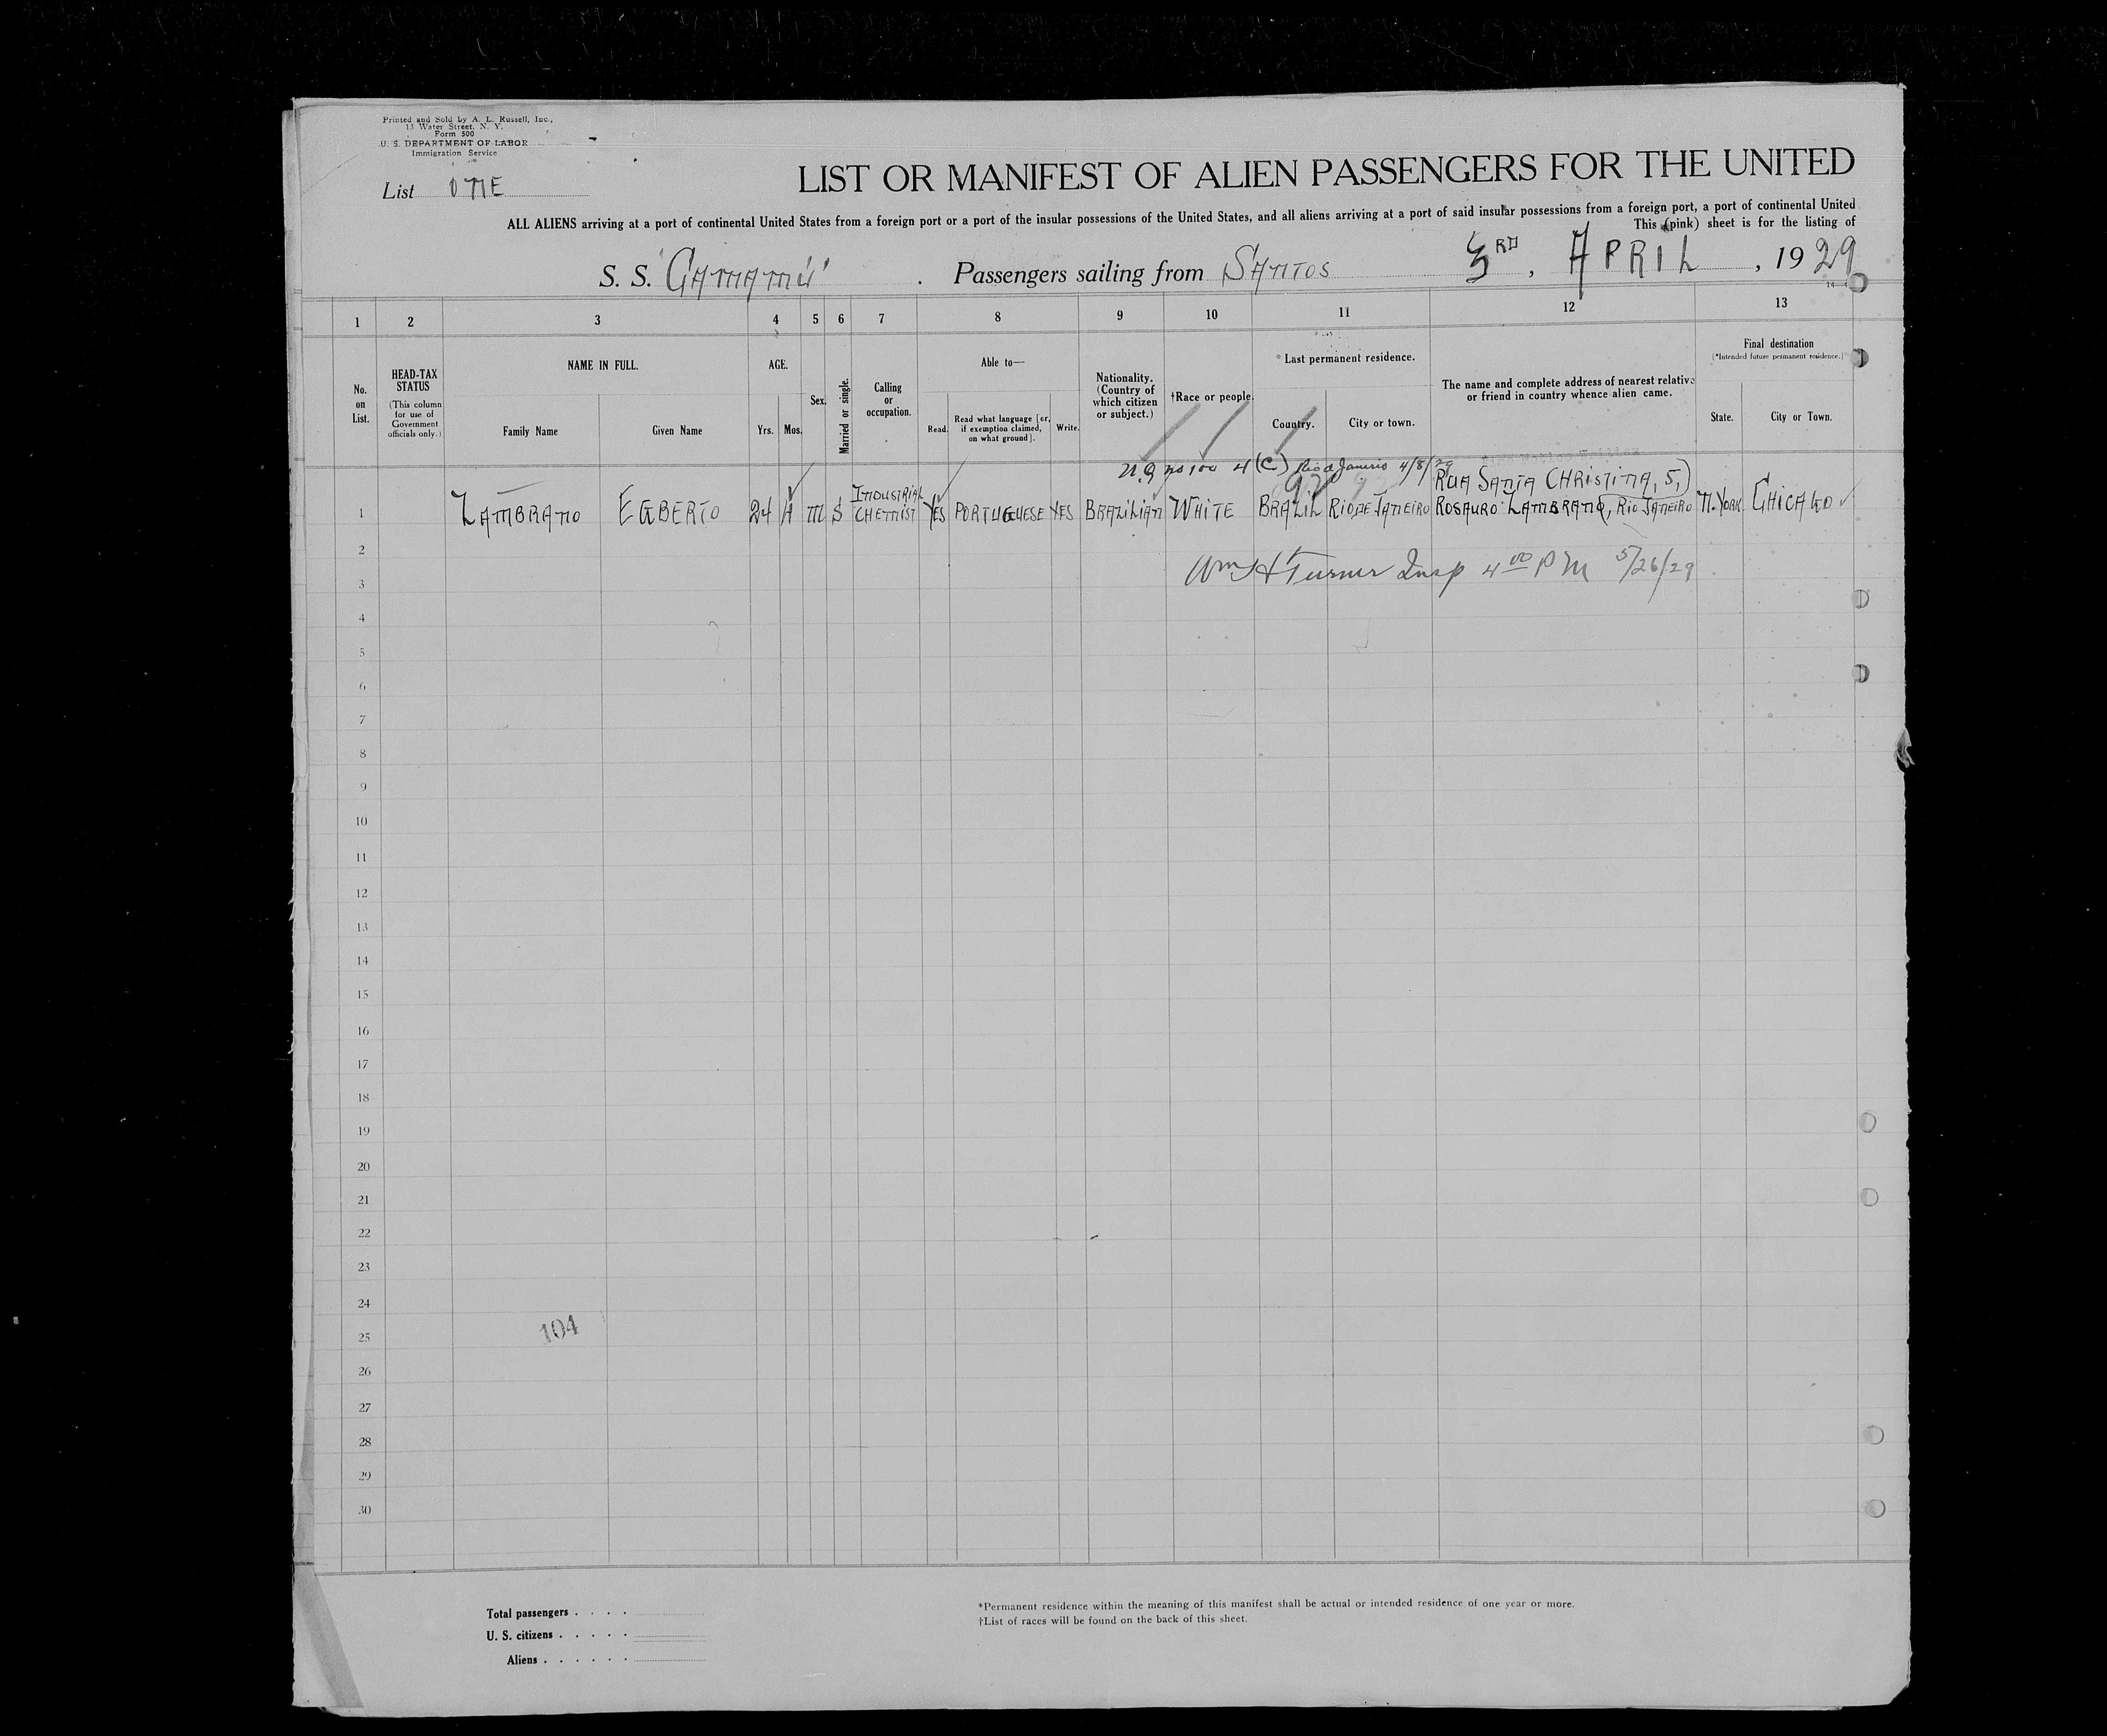 Printed and Sold by A. L. Russell, Inc.,
13 Water Street, N. Y.
Form 500
U. S. DEPARTMENT OF LABOR
Immigration Service
List ONE
LIST OR MANIFEST OF ALIEN PASSENGERS FOR THE UNITED
ALL ALIENS arriving at a port of continental United States from a foreign port or a port of the insular possessions of the United States, and all aliens arriving at a port of said insular possessions from a foreign port, a port of continental United
This (pink) sheet is for the listing of
S. S. "CAMAMÚ" . Passengers sailing from SANTOS 3RD , APRIL , 1929
1 2 3 4 5 6 7 8 9 10 11 12 13
No. on List.
HEAD-TAX STATUS
(This column for use of Government officials only.)
NAME IN FULL.
Family Name Given Name
AGE.
Yrs. Mos.
Sex.
Married or single.
Calling or occupation.
Able to—
Read. Read what language [or, if exemption claimed, on what ground]. Write.
Nationality. (Country of which citizen or subject.)
†Race or people.
*Last permanent residence.
Country. City or town.
The name and complete address of nearest relative or friend in country whence alien came.
Final destination
[*Intended future permanent residence.]
State. City or Town.
4 (C) Rio d Janerio 4/8/29
RUA SANTA CHRISTINA, 5,
1 ZAMBRANO EGBERTO 24 M S INDUSTRIAL CHEMIST YES PORTUGUESE YES BRAZILIAN WHITE BRAZIL RIO DE JANEIRO ROSAURO ZAMBRANO, RIO JANEIRO N. YORK CHICAGO
2
Wm H Turner Insp 4 00 PM 5/26/29
3
4
5
6
7
8
9
10
11
12
13
14
15
16
17
18
19
20
21
22
23
24
104
25
26
27
28
29
30
Total passengers . . . .
U. S. citizens . . . . .
Aliens . . . . . .
*Permanent residence within the meaning of this manifest shall be actual or intended residence of one year or more.
†List of races will be found on the back of this sheet.